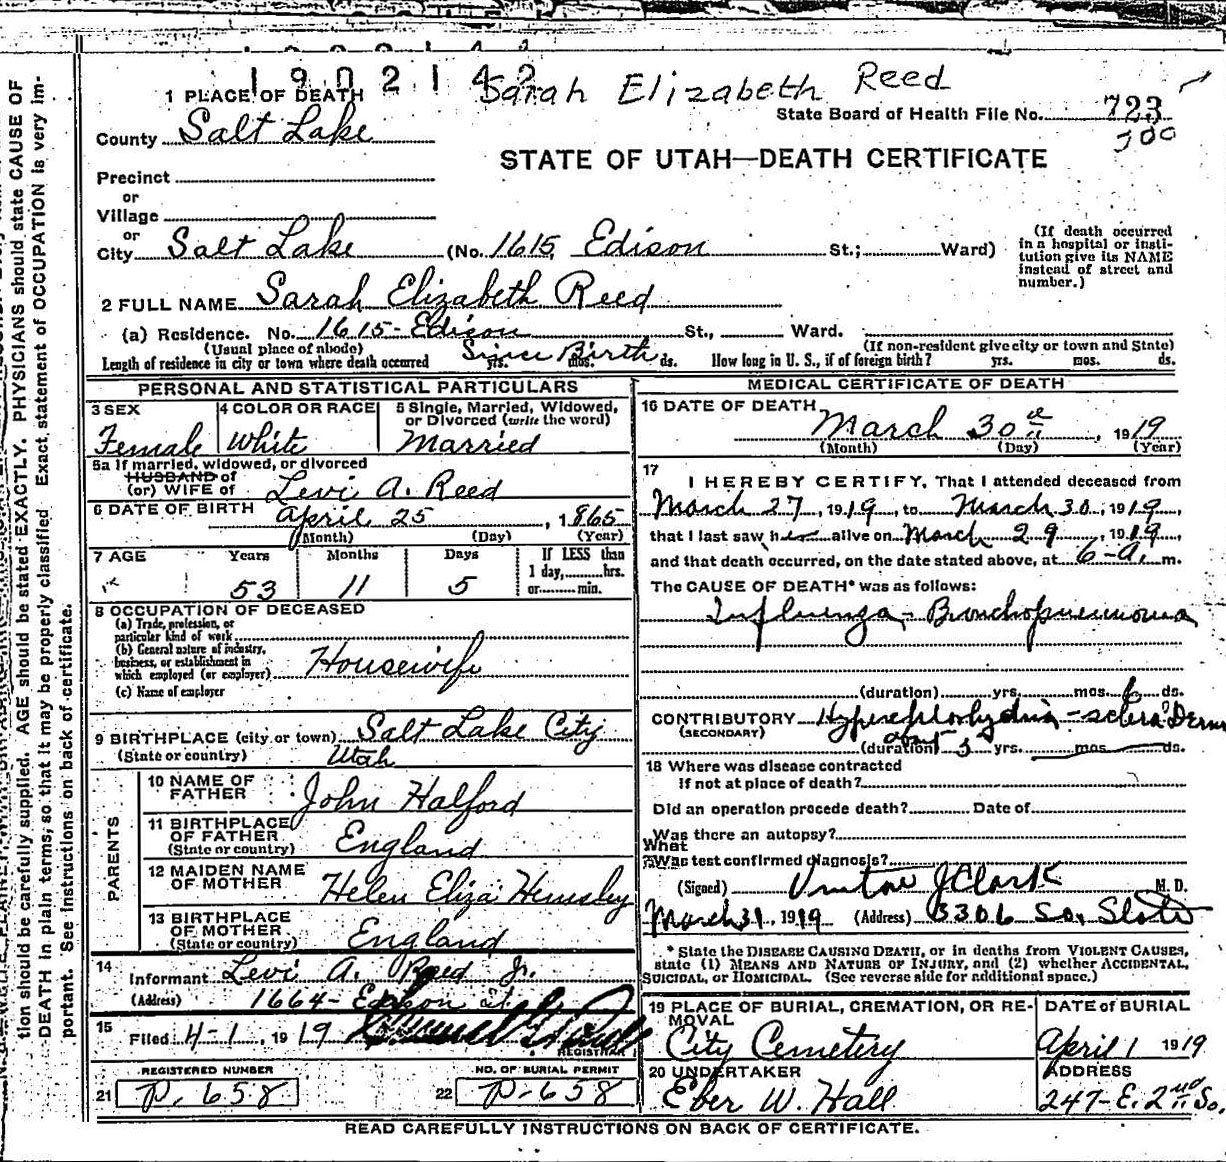 1902142 Sarah Elizabeth Reed
1 PLACE OF DEATH
State Board of Health File No. 723
300
County Salt Lake
STATE OF UTAH—DEATH CERTIFICATE
Precinct
or
Village
or
City Salt Lake (No. 1615 Edison St.; Ward)
(If death occurred in a hospital or insti-
tution give its NAME
instead of street and
number.)
2 FULL NAME Sarah Elizabeth Reed
(a) Residence. No. 1615-Edison St., Ward.
(Usual place of abode) (If non-resident give city or town and State)
Length of residence in city or town where death occurred Since Birth yrs. mos. ds. How long in U. S., if of foreign birth? yrs. mos. ds.
PERSONAL AND STATISTICAL PARTICULARS
3 SEX Female
4 COLOR OR RACE White
5 Single, Married, Widowed,
or Divorced (write the word)
Married
5a If married, widowed, or divorced
HUSBAND of
(or) WIFE of Levi A. Reed
6 DATE OF BIRTH April 25, 1865
(Month) (Day) (Year)
7 AGE Years Months Days If LESS than
1 day, hrs.
53 11 5 or min.
8 OCCUPATION OF DECEASED
(a) Trade, profession, or
particular kind of work
(b) General nature of industry,
business, or establishment in
which employed (or employer) Housewife
(c) Name of employer
9 BIRTHPLACE (city or town) Salt Lake City
(State or country) Utah
PARENTS
10 NAME OF
FATHER John Halford
11 BIRTHPLACE
OF FATHER
(State or country) England
12 MAIDEN NAME
OF MOTHER Helen Eliza Hemsley
13 BIRTHPLACE
OF MOTHER
(State or country) England
14 Informant Levi A. Reed Jr.
(Address) 1664- Edison St.
15 Filed 4-1, 1919
REGISTRAR
REGISTERED NUMBER NO. OF BURIAL PERMIT
21 P. 658 22 P-658
MEDICAL CERTIFICATE OF DEATH
16 DATE OF DEATH
March 30th, 1919
(Month) (Day) (Year)
17 I HEREBY CERTIFY, That I attended deceased from
March 27, 1919, to March 30, 1919,
that I last saw her alive on March 29, 1919,
and that death occurred, on the date stated above, at 6-a. m.
The CAUSE OF DEATH* was as follows:
Influenza - Bronchopneumonia
(duration) yrs. mos. 6 ds.
CONTRIBUTORY
(SECONDARY)
(duration) 3 yrs. mos. ds.
18 Where was disease contracted
if not at place of death?
Did an operation precede death? Date of
Was there an autopsy?
What
Was test confirmed diagnosis?
(Signed) J Clark M. D.
March 31, 1919 (Address) 3306 So. State
* State the DISEASE CAUSING DEATH, or in deaths from VIOLENT CAUSES,
state (1) MEANS AND NATURE OF INJURY, and (2) whether ACCIDENTAL,
SUICIDAL, or HOMICIDAL. (See reverse side for additional space.)
19 PLACE OF BURIAL, CREMATION, OR RE-
MOVAL
City Cemetery
DATE of BURIAL
April 1 1919
20 UNDERTAKER
Eber W. Hall
ADDRESS
247-E. 2nd So.
READ CAREFULLY INSTRUCTIONS ON BACK OF CERTIFICATE.
tion should be carefully supplied. AGE should be stated EXACTLY. PHYSICIANS should state CAUSE OF
DEATH in plain terms, so that it may be properly classified. Exact statement of OCCUPATION is very im-
portant. See Instructions on back of certificate.